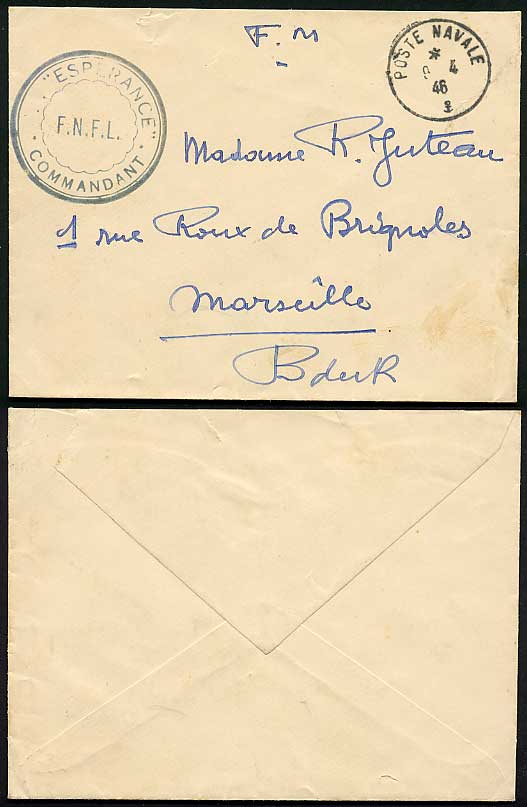 F. M
POSTE NAVALE
* 4
46
"ESPERANCE"
F.N.F.L.
COMMANDANT
Madame R. Juteau
1 rue Roux de Brignoles
Marseille
B du R